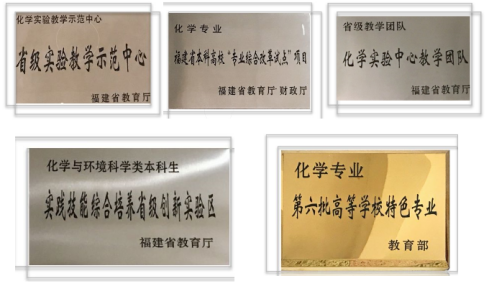 化学实验教学示范中心
省级实验教学示范中心
福建省教育厅
化学专业
福建省本科高校“专业综合改革试点”项目
福建省教育厅 财政厅
省级教学团队
化学实验中心教学团队
福建省教育厅
化学与环境科学类本科生
实践技能综合培养省级创新实验区
福建省教育厅
化学专业
第六批高等学校特色专业
教育部